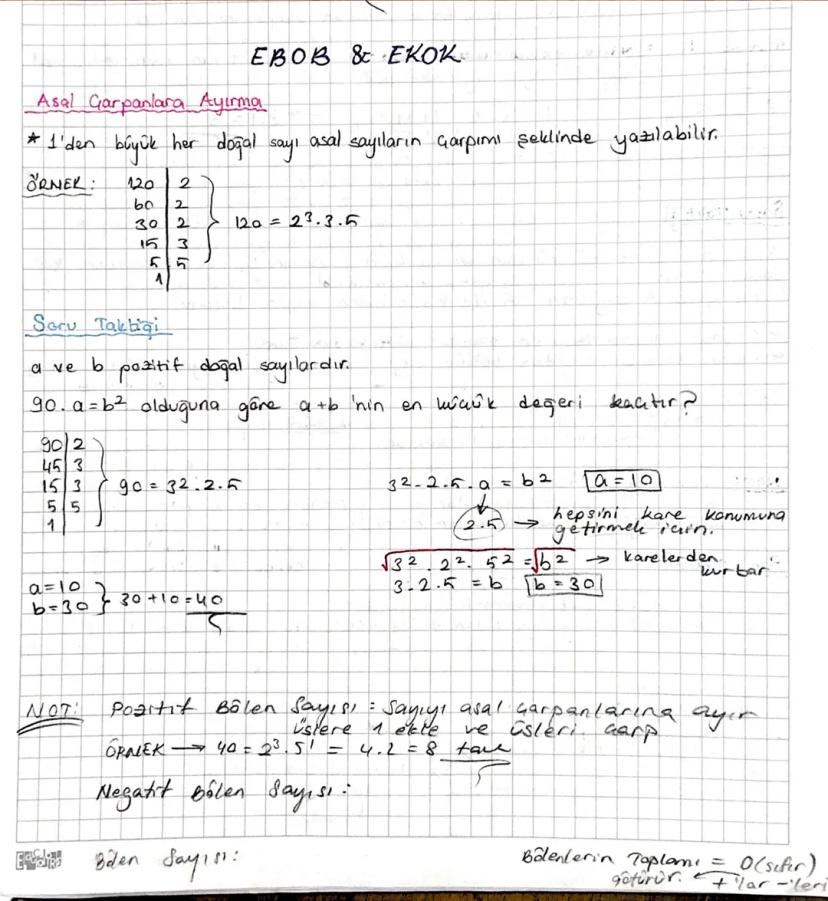 EBOB & EKOK
Asal Çarpanlara Ayırma
* 1'den büyük her doğal sayı asal sayıların çarpımı şeklinde yazılabilir.
ÖRNEK: 120 | 2
60 | 2
30 | 2 } 120 = 2³.3.5
15 | 3
5 | 5
1
Soru Taktiği
a ve b pozitif doğal sayılardır.
90.a=b² olduğuna göre a+b 'nin en küçük değeri kaçtır?
90 | 2
45 | 3
15 | 3 } 90 = 3².2.5
5 | 5
1
3².2.5.a = b² a=10
2.5 → hepsini kare konumuna
getirmek için.
√3².2².5² = √b² → karelerden
kurtar
3.2.5 = b b=30
a=10
b=30 } 30+10=40
NOT: Pozitif Bölen Sayısı: Sayıyı asal çarpanlarına ayır
üslere 1 ekle ve üsleri çarp
ÖRNEK → 40 = 2³.5¹ = 4.2=8 tane
Negatif Bölen Sayısı:
Bölen Sayısı:
Bölenlerin Toplamı = 0(sıfır)
götürür. ← +'lar -'leri